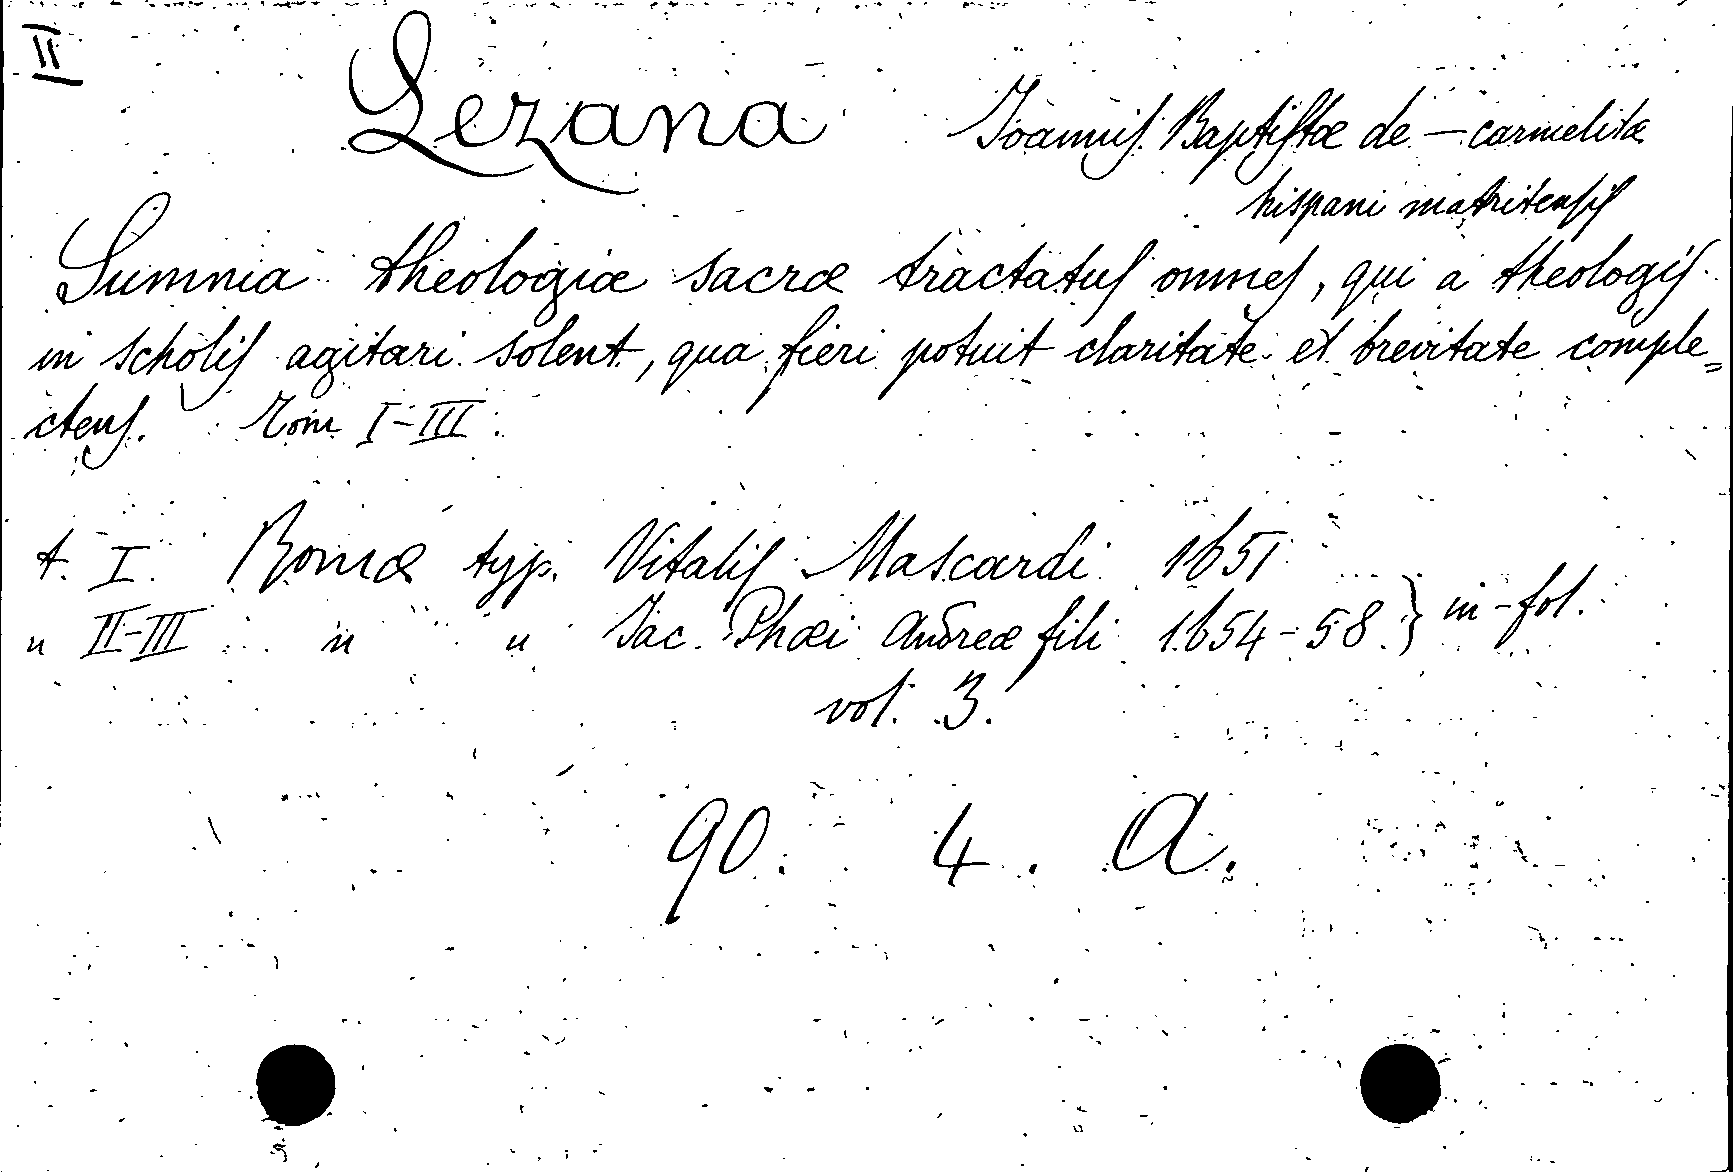 II
Lezana Joannis Baptistæ de — carmelitæ
hispani matritensis
Summa theologiæ sacræ tractatus omnes, qui a theologis
in scholis agitari solent, qua fieri potuit claritate et brevitate comple=
ctens. Tom I-III.
t. I. Romæ typ. Vitalis Mascardi 1651
" II-III " " Jac. Phæi Andreæ fili 1654-58.} in-fol.
vol. 3.
90. 4. A.